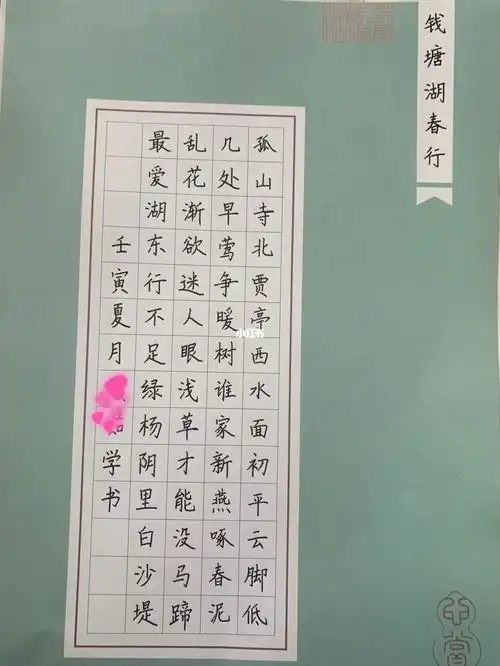 钱塘湖春行
孤山寺北贾亭西水面初平云脚低
几处早莺争暖树谁家新燕啄春泥
乱花渐欲迷人眼浅草才能没马蹄
最爱湖东行不足绿杨阴里白沙堤
壬寅夏月学书
小红书
中堂